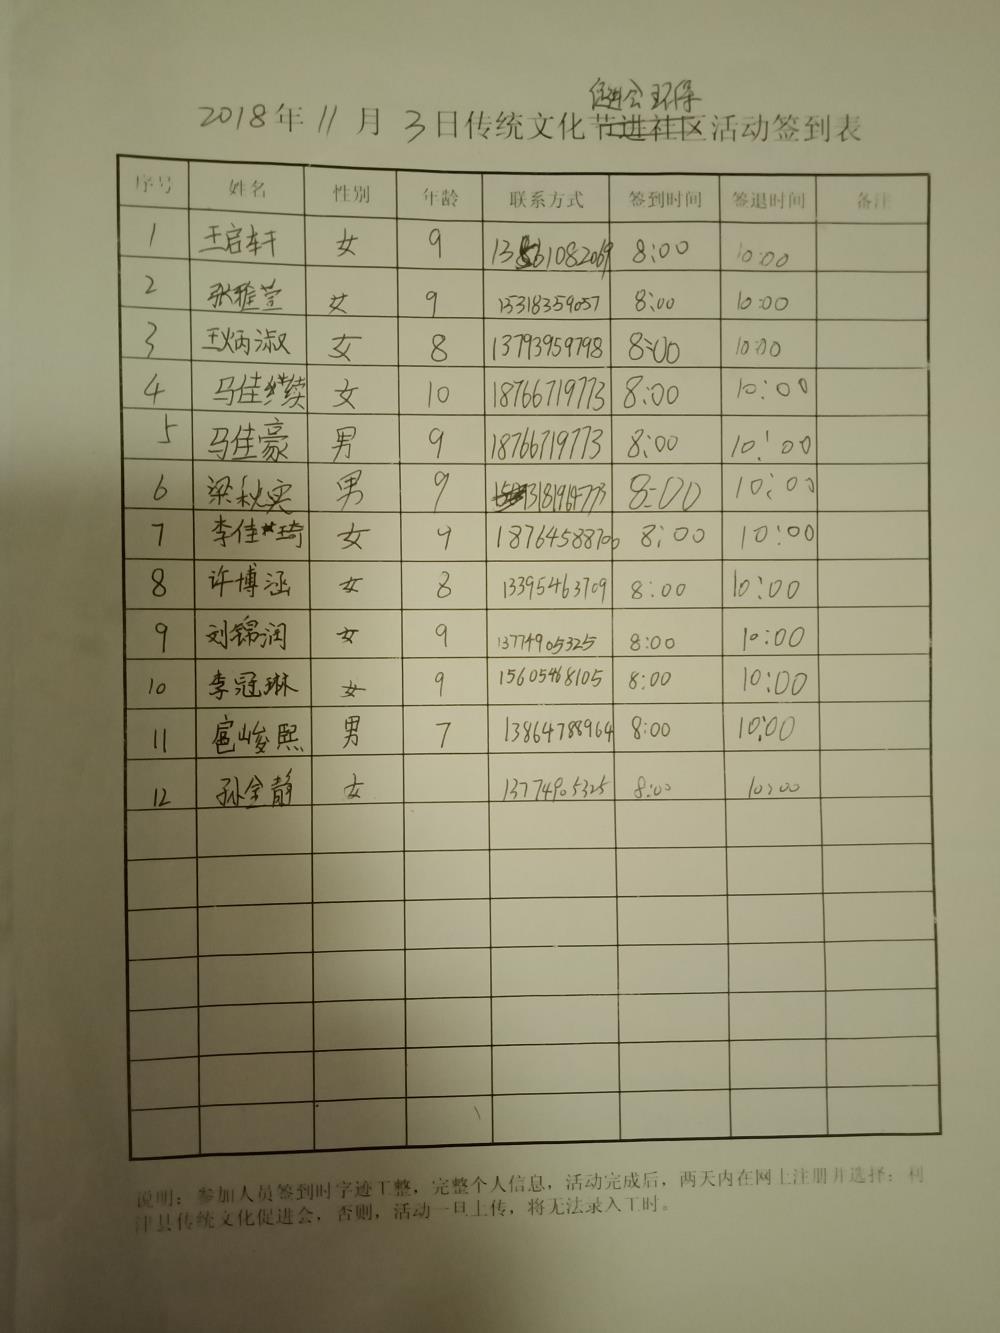 促进会环保
2018年11月3日传统文化节进社区活动签到表
序号 姓名 性别 年龄 联系方式 签到时间 签退时间 备注
1 王启轩 女 9 13561082069 8:00 10:00
2 张雅萱 女 9 15318359057 8:00 10:00
3 王炳淑 女 8 13793959798 8:00 10:00
4 马佳续 女 10 18766719773 8:00 10:00
5 马佳豪 男 9 18766719773 8:00 10:00
6 梁秋实 男 9 13181964773 8:00 10:00
7 李佳琦 女 9 18764588706 8:00 10:00
8 许博涵 女 8 13395463709 8:00 10:00
9 刘锦润 女 9 13774905325 8:00 10:00
10 李冠琳 女 9 15605468105 8:00 10:00
11 扈峻熙 男 7 13864788964 8:00 10:00
12 孙金静 女 13774905325 8:00 10:00
说明：参加人员签到时字迹工整，完整个人信息，活动完成后，两天内在网上注册并选择：利
津县传统文化促进会，否则，活动一旦上传，将无法录入工时。